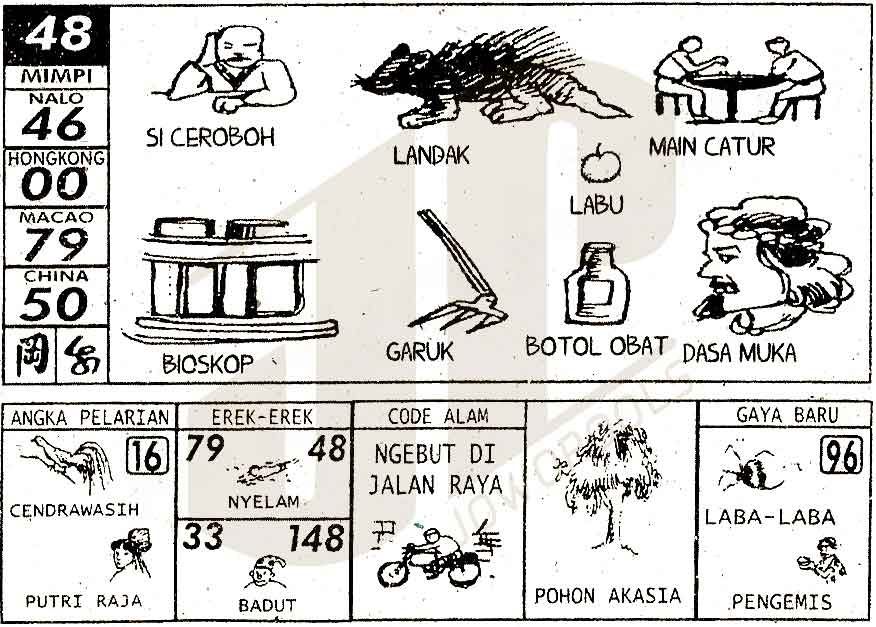 48
MIMPI
NALO
46
HONGKONG
00
MACAO
79
CHINA
50
SI CEROBOH
LANDAK
MAIN CATUR
LABU
BIOSKOP
GARUK
BOTOL OBAT
DASA MUKA
ANGKA PELARIAN
16
CENDRAWASIH
PUTRI RAJA
EREK-EREK
79 48
NYELAM
33 148
BADUT
CODE ALAM
NGEBUT DI
JALAN RAYA
POHON AKASIA
GAYA BARU
96
LABA-LABA
PENGEMIS
JOWOPOOLS